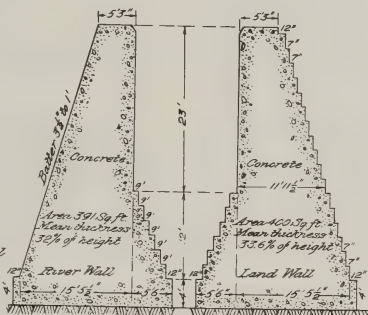 5'3"
5'3"
12"
7"
7"
Batter 3⅜" to 1'
23'
Concrete
Concrete
9'
11'11½"
9'
Area 391 Sq ft
Mean thickness
32% of height
9'
9'
12'
Area 400 Sq ft
Mean thickness
33.6% of height
7"
7"
12"
River Wall
12"
12"
Land Wall
12"
4'
15'5½"
5'6"
4'
5'6"
15'5½"
4'